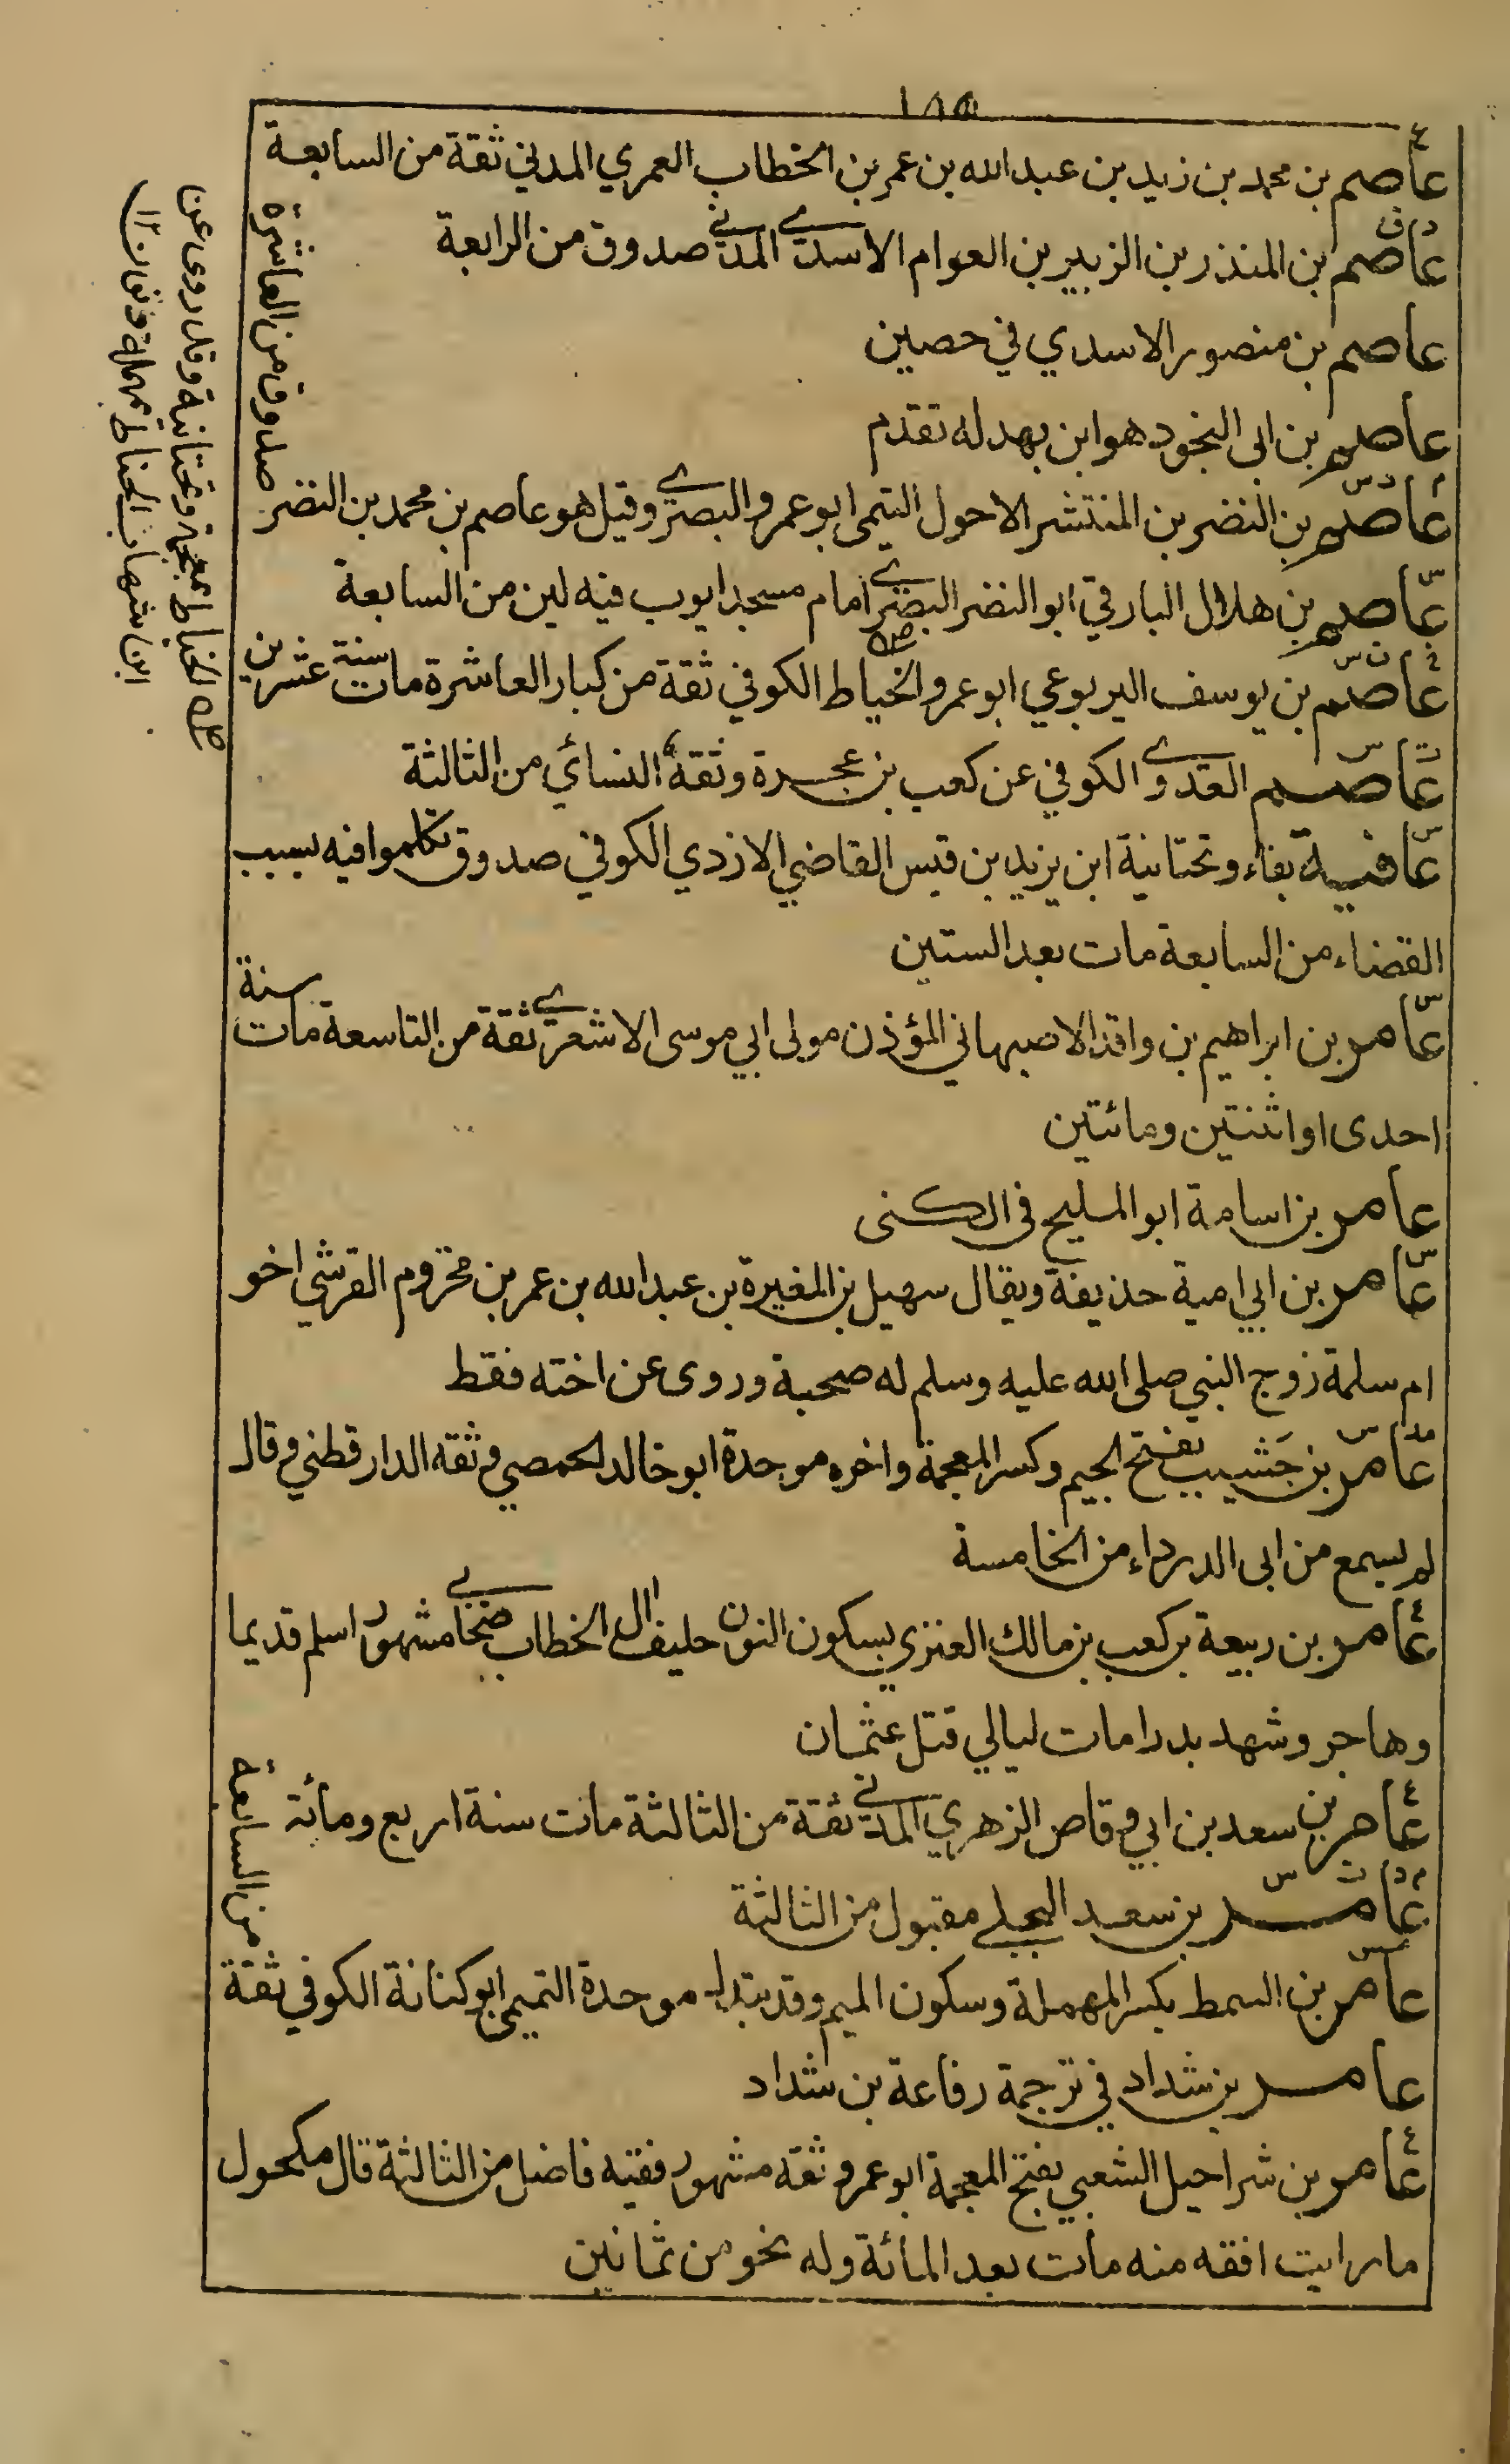 ١٨٥
ع
عاصم بن محمد بن زيد بن عبد الله بن عمر بن الخطاب العمري المدني ثقة من السابعة
د ق
عاصم بن المنذر بن الزبير بن العوام الاسدي المدني صدوق من الرابعة
عاصم بن منصور الاسدي في حصين
عاصم بن ابي النجود هو ابن بهدله تقدم
م د س
عاصم بن النضر بن المنتشر الاحول التيمي ابو عمرو البصري وقيل هو عاصم بن محمد بن النضر
صدوق من العاشرة
س
عاصم بن هلال البارقي ابو النضر البصري امام مسجد ايوب فيه لين من السابعة
عاصم بن يوسف اليربوعي ابو عمرو الخياط الكوفي ثقة من كبار العاشرة مات سنة عشرين
ت س
عاصم العدوي الكوفي عن كعب بن عجرة وثقه النسائي من الثالثة
س
عافية بفاء وتحتانية ابن يزيد بن قيس القاضي الازدي الكوفي صدوق تكلموا فيه بسبب
القضاء من السابعة مات بعد الستين
س
عامر بن ابراهيم بن واقد الاصبهاني المؤذن مولى ابي موسى الاشعري ثقة من التاسعة مات سنة
احدى او اثنتين ومائتين
عامر بن اسامة ابو المليح في الكنى
س
عامر بن ابي امية حذيفة ويقال سهيل بن المغيرة بن عبد الله بن عمر بن مخزوم القرشي اخو
ام سلمة زوج النبي صلى الله عليه وسلم له صحبة وروى عن اخته فقط
مد س
عامر بن جَشيب بفتح الجيم وكسر المعجمة واخره موحدة ابو خالد الحمصي وثقه الدارقطني وقال
لم يسمع من ابي الدرداء من الخامسة
ع
عامر بن ربيعة بن كعب بن مالك العنزي بسكون النون حليف ال الخطاب صحابي مشهور اسلم قديما
وهاجر وشهد بدرا مات ليالي قتل عثمان
ع
عامر بن سعد بن ابي وقاص الزهري المدني ثقة من الثالثة مات سنة اربع ومائة
م د ت س
عامر بن سعد البجلي مقبول من الثالثة
عس
عامر بن السمط بكسر المهملة وسكون الميم وقد تبدل موحدة التميمي ابو كنانة الكوفي ثقة
من السابعة
عامر بن شداد في ترجمة رفاعة بن شداد
ع
عامر بن شراحيل الشعبي بفتح المعجمة ابو عمرو ثقه مشهور فقيه فاضل من الثالثة قال مكحول
ما رايت افقه منه مات بعد المائة وله نحو من ثمانين
الخياط بمعجمة وتحتانية وقد روى عن
ابن شهاب الحناط بمهملة ونون ١٢